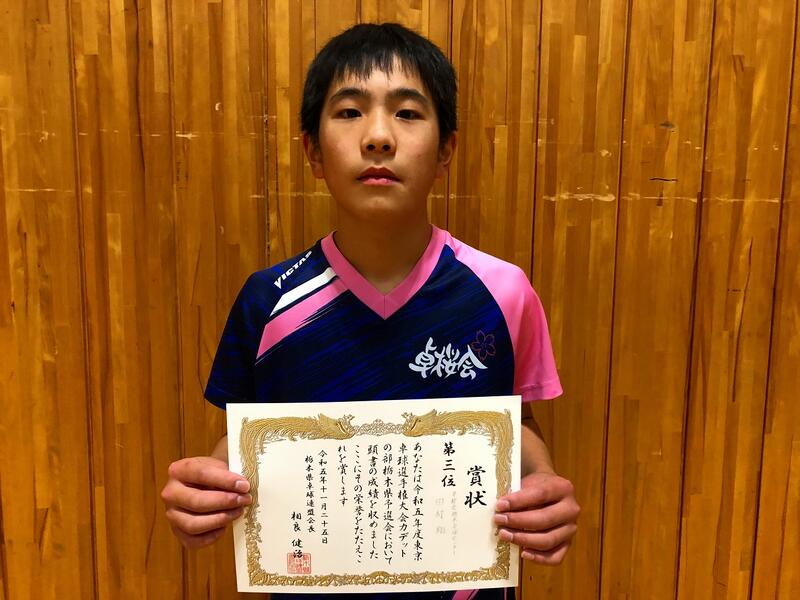 VICTAS
卓桜会
賞状
第三位
あなたは令和五年度東京
卓球選手権大会カデット
の部栃木県予選会において
頭書の成績を収めました
ここにその栄誉をたたえこ
れを賞します
令和五年十一月二十五日
栃木県卓球連盟会長
相良 健治